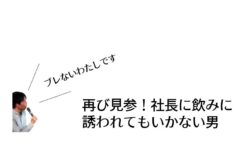 ブレないわたしです
再び見参！社長に飲みに
誘われてもいかない男